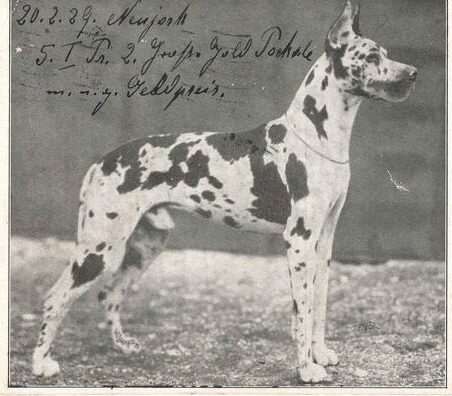 20.2.29. Neujork
5. I Pr. 2. Große Gold Pockale
m. u. g. Geldpreis.